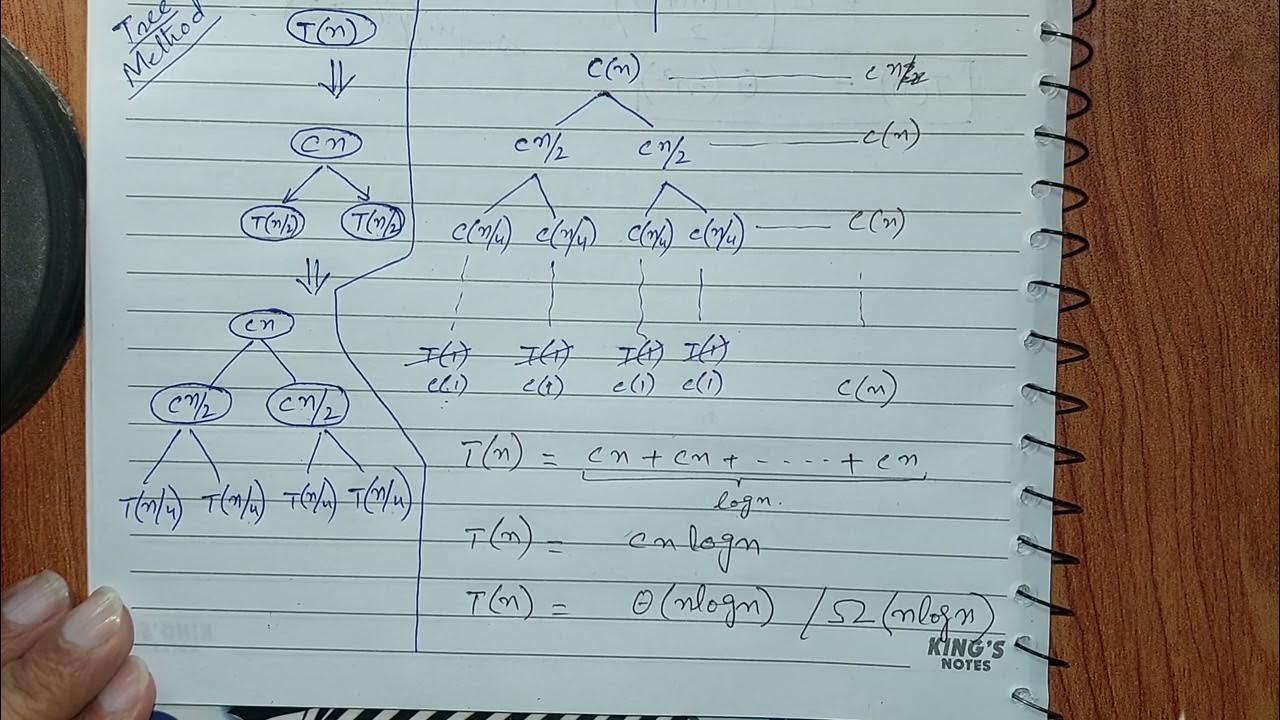 Tree
Method
T(n)
⇓
cn
T(n/2) T(n/2)
⇓
cn
cn/2 cn/2
T(n/4) T(n/4) T(n/4) T(n/4)
C(n) cn
cn/2 cn/2 c(n)
c(n/4) c(n/4) c(n/4) c(n/4) c(n)
T(1) T(1) T(1) T(1)
c(1) c(1) c(1) c(1) c(n)
T(n) = cn + cn + ---- + cn
logn.
T(n) = cnlogn
T(n) = θ(nlogn) / Ω(nlogn)
KING'S
NOTES